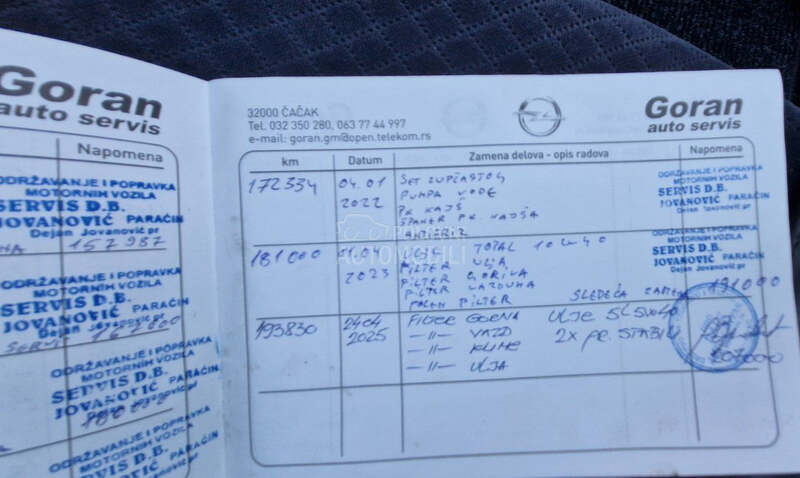 Goran
auto servis
Napomena
ODRŽAVANJE I POPRAVKA
MOTORNIH VOZILA
SERVIS D.B.
JOVANOVIĆ PARAĆIN
Dejan Jovanović pr
157987
ODRŽAVANJE I POPRAVKA
MOTORNIH VOZILA
SERVIS D.B.
JOVANOVIĆ PARAĆIN
Dejan Jovanović pr
SERVIS
ODRŽAVANJE I POPRAVKA
MOTORNIH VOZILA
SERVIS D.B.
JOVANOVIĆ PARAĆIN
ODRŽAVANJE I POPRAVKA
MOTORNIH VOZILA
SERVIS D.B.
JOVANOVIĆ PARAĆIN
Dejan Jovanović pr
ODRŽAVANJE I POPRAVKA
32000 ČAČAK
Tel. 032 350 280, 063 77 44 997
e-mail: goran.gm@open.telekom.rs
Goran
auto servis
km Datum Zamena delova - opis radova Napomena
172334 04.01 SET ZUPČASTOG
2022 PUMPA VODE
PK KAJŠ
ŠPANER PK KAJŠA
ANTIFRIZ
ODRŽAVANJE I POPRAVKA
MOTORNIH VOZILA
SERVIS D.B.
JOVANOVIĆ PARAĆIN
Dejan Jovanović pr
POLOVNI AUTOMOBILI
181000 TOTAL 10W40
2023 FILTER ULJA
FILTER GORIVA
FILTER VAZDUHA
FILTER
SLEDEĆA ZAMENA 191000
ODRŽAVANJE I POPRAVKA
MOTORNIH VOZILA
SERVIS D.B.
JOVANOVIĆ PARAĆIN
Dejan Jovanović pr
193830 24.04 FILTER GORIVA ULJE
2025 -11- VAZD 2X PR. STABIL
-11- KLIME
-11- ULJA
207000